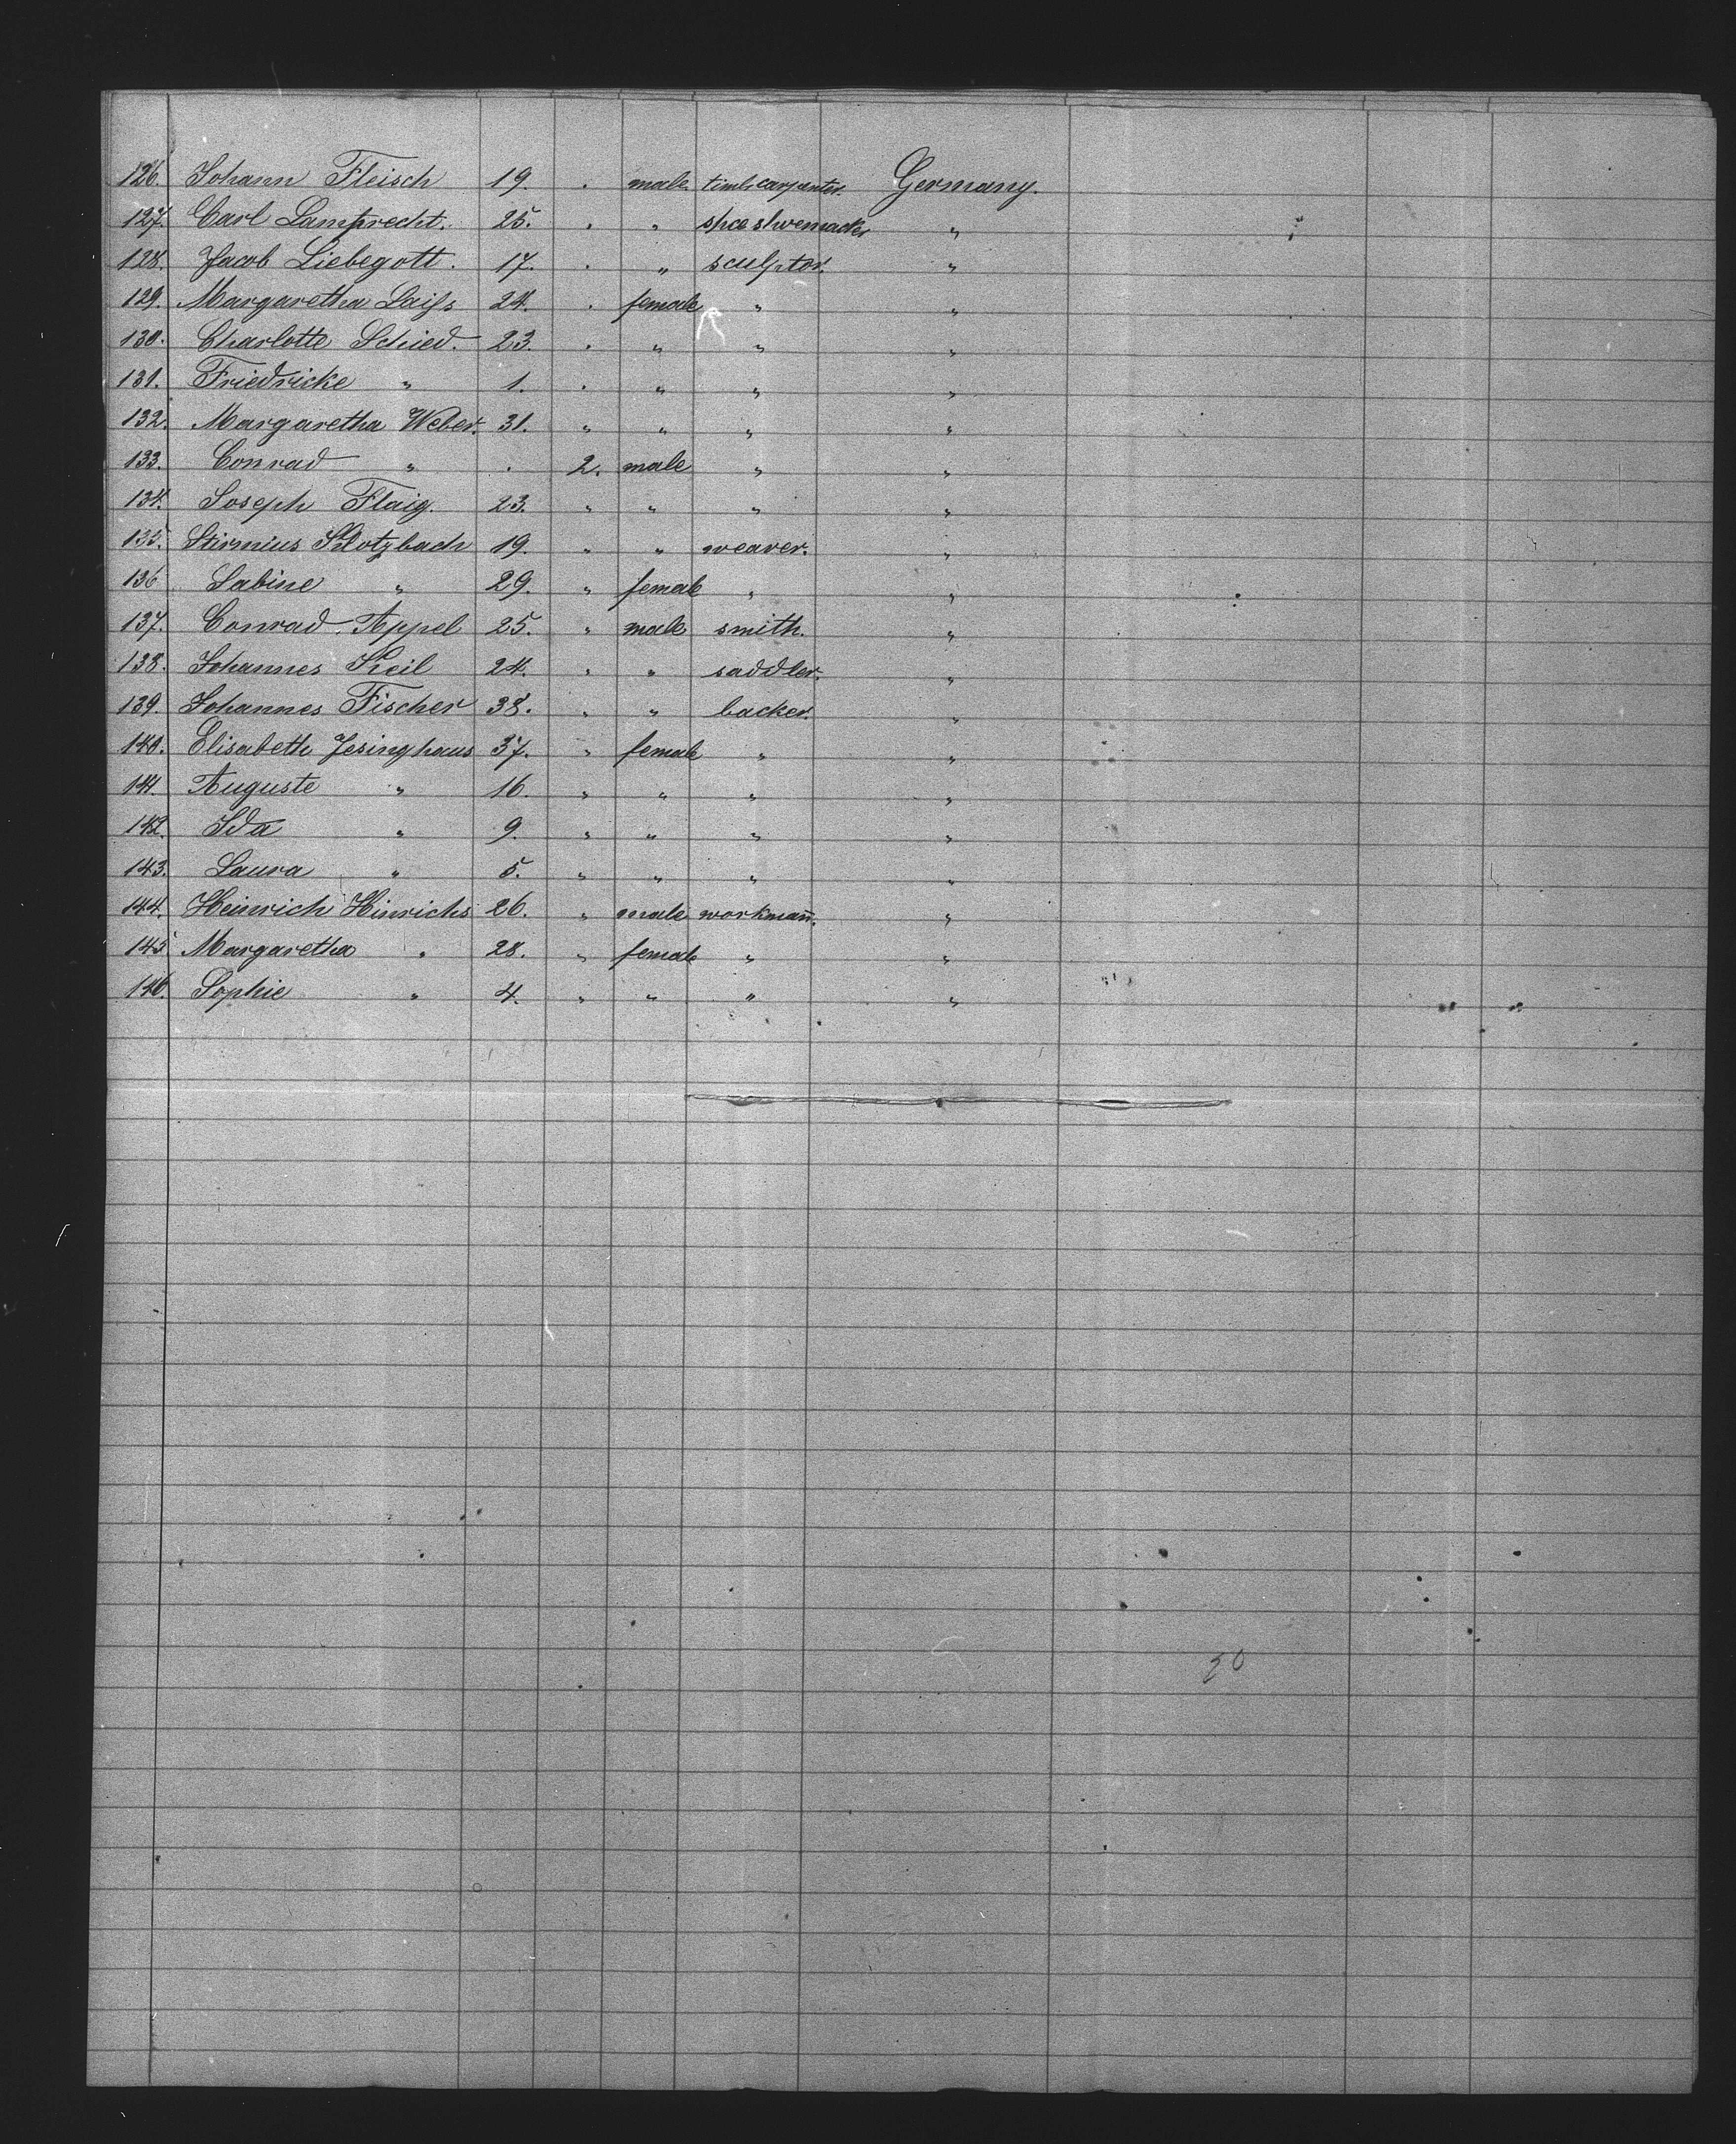 126. Johann Fleisch 19. . male timb. carpenter. Germany.
127. Carl Lamprecht. 25. . " shoemacker "
128. Jacob Liebegott. 17. . " sculptor. "
129. Margaretha Laiss 24. . female " "
130. Charlotte Schied. 23. . " " "
131. Friedricke " 1. . " " "
132. Margaretha Weber. 31. " " " "
133. Conrad " . 2. male " "
134. Joseph Flaig. 23. " " " "
135. Stirmius Klotzbach 19. " " weaver. "
136 Sabine " 29. " female " "
137. Conrad Appel 25. " male smith. "
138. Johannes Keil 24. " " saddler. "
139. Johannes Fischer 38. " " backer. "
140. Elisabeth Jesinghaus 37. " female " "
141. Auguste " 16. " " " "
142. Ida " 9. " " " "
143. Laura " 5. " " " "
144. Heinrich Hinrichs 26. " male workmann. "
145 Margaretha " 28. " female " "
146. Sophie " 4. " " " "